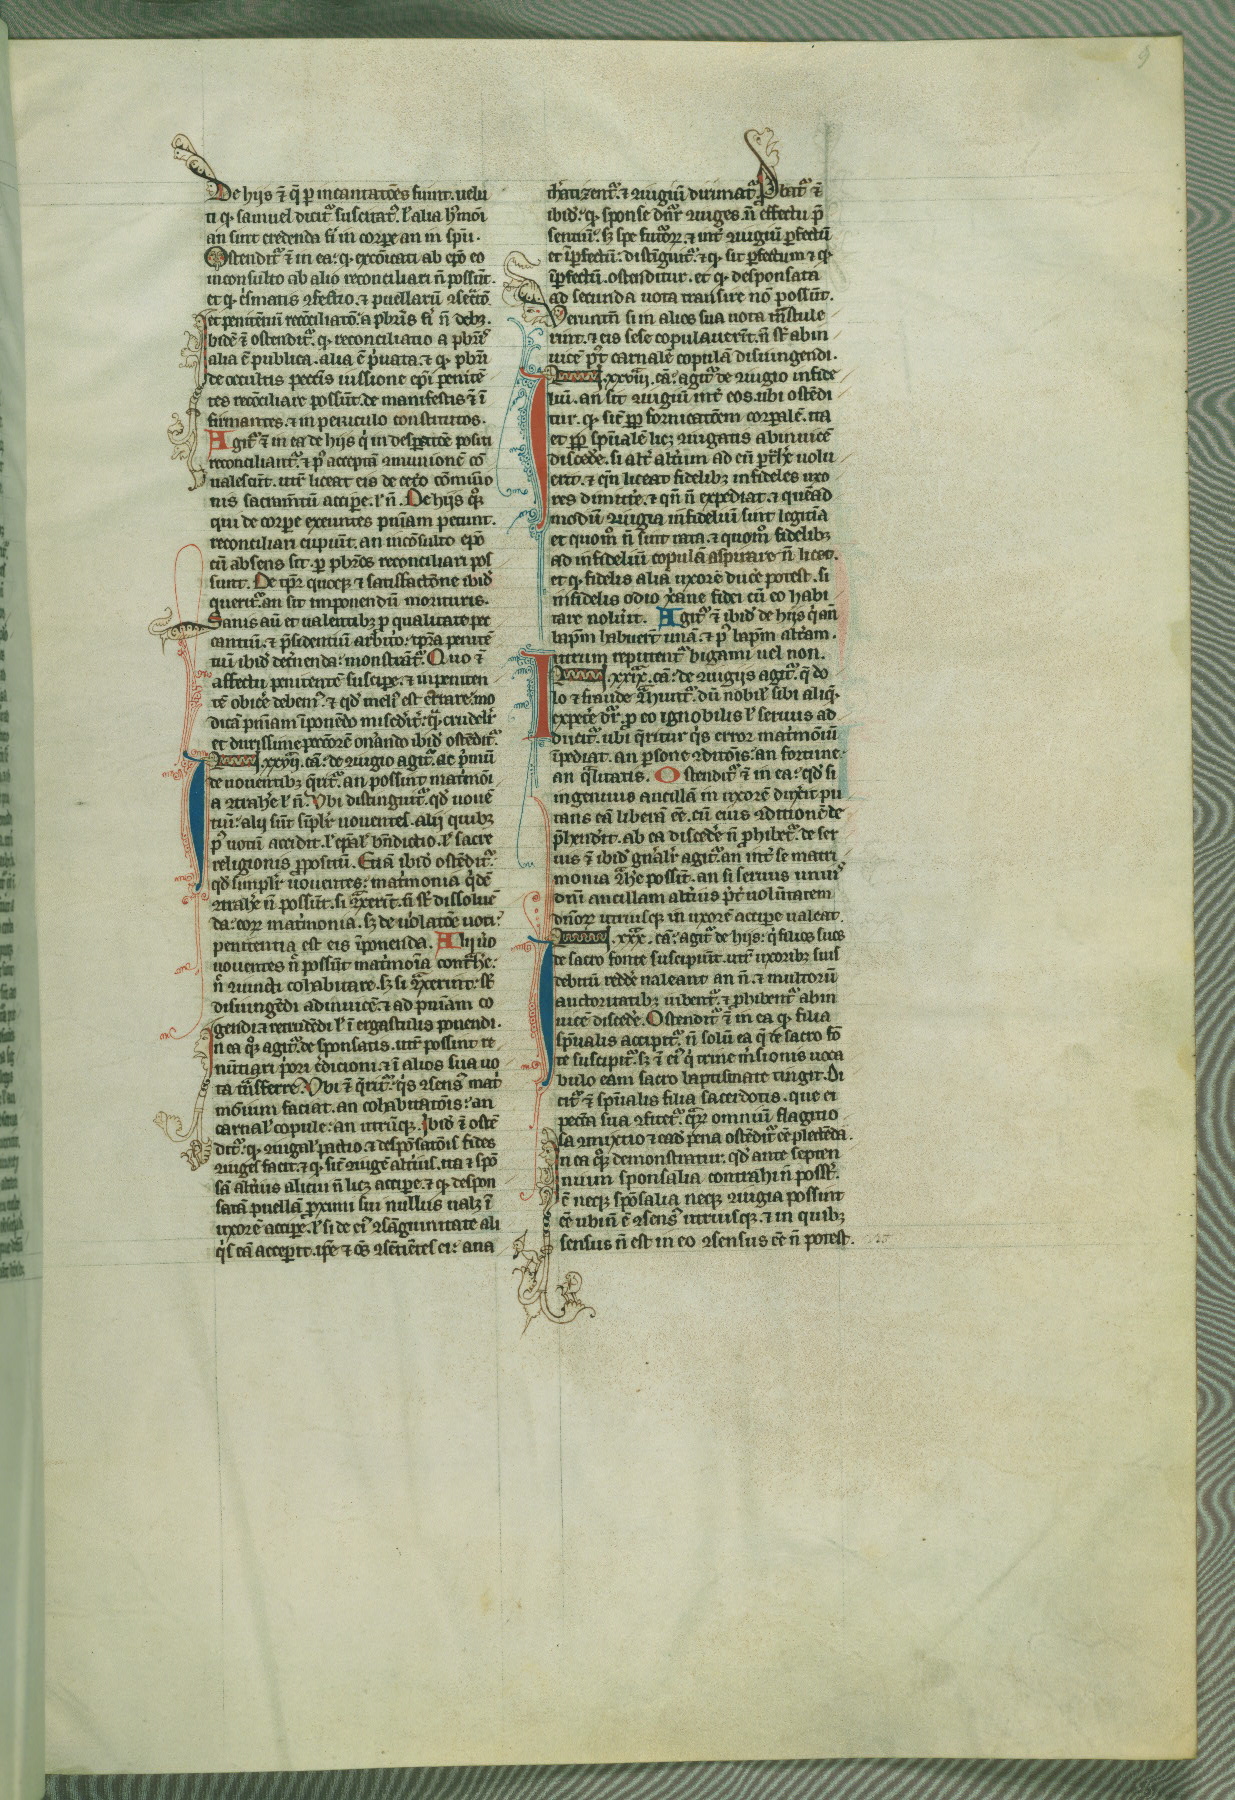 De hijs etiā q̄ ꝑ incantatōes fiunt. uelu
ti ꝙ samuel dicitᷣ suscitatꝰ. ł alia hꝰmōi
an sint credenda fi͛i in corpꝫe an in sp̄u.
Ostenditᷣ ⁊̄ in ea: ꝙ excōicati ab ep̄o eo
inconsulto ab alio reconciliari n̄ possūt.
et ꝙ c͛smatis ꝯfectio. ⁊ puellarū ꝯsec͛tō
et penitētiū recōciliatō. a pb͛ris fi͛i n̄ debꝫ.
ibidē ⁊̄ ostenditᷣ. ꝙ reconciliatio a pb͛ris
alia ē publica. alia ē p͛uata. ⁊ ꝙ pb͛ri
de occultis pecc̄is iussione ep̄i penitē
tes recōciliare possūt. de manifestis ⁊ ī
firmantes. ⁊ in periculo constitutos.
Agitᷣ ⁊̄ in ea de hijs q͛ in desꝑatōe positi
reconciliantᷣ. ⁊ pꝰ acceptā ꝯmunionē cō
ualescūt. utꝝ liceat eis de cet͛o cōmunio
nis sacram̄tū accipe. ł n̄. De hijs q̄ꝫ
qui de corpꝫe exeuntes pn̄iam petunt.
reconciliari cupiūt. an incōsulto ep̄o
cū absens sit. ꝑ pb͛ros reconciliari pos
sunt. De tp̄r quoqꝫ ⁊ satisfactōne ibid̄
querit᷑. an sit imponendū morituris.
Sanis aū et ualentibꝫ ꝑ qualitate pec
cantiū. ⁊ p̄sidentiū arbitͦo. tp̄ra penitē
tiū ibid̄ dec͛nenda. monst͛atᷣ. Quo ⁊̄
affectu penitentē suscipe. ⁊ inpeniten
tē obic͛e debem̄ꝰ. ⁊ qd̄ meliꝰ est ei͛tare mo
dicā pn̄iam īponēdo mis͛edit͛. qᷓ crudelit͛
et durissime peccōrē on͛ando ibid̄ ostēditᷣ.
In xxvij. cā. de ꝯiugio agitᷣ. ac p͛mū
de uouentibꝫ q͛ritᷣ. an possint matͥmōi
a ꝯtrah͛e ł n̄. Vbi distinguitᷣ. qd̄ uouē
tiū. alij sūt sīplir uouentes. alij quibꝫ
pꝰ uotū accidit. ł ep̄aľ bn̄dictio. ł sacre
religionis ꝓpositū. Etiā ibid̄ ostēditᷣ.
qd̄ simplir uouentes: matͥmonia q͛dē
ꝯtrah͛e n̄ possūt. si ꝯtᷓxerīt. fi͛ ss̄t dissoluē
da. eoꝝ matͥmonia. sꝫ de uiolatōe uoti
penitentia est eis īponenda. Alij u͛o
uouentes n̄ possūt matͥmoīa contᷓh͛e:
n̄ ꝯiuncti cohabitare. sꝫ si ꝯtᷓxerīt: ss̄t
disiungēdi adinuicē. ⁊ ad pn̄iam co
gendi. ⁊ retrudēdi ł ī ergastulis ponendi.
In ea qꝫ agitᷣ. de sponsatis. utꝝ possint re
nūtiari pͥori ꝯdicioni. ⁊ ī alios sua uo
ta tᷓnsferre. Vbi ⁊̄ q͛ritᷣ. q͛s ꝯsensꝰ mat͛
mōium faciat. an cohabitatōis: an
carnaľ copule: an utrūqꝫ. Ibid̄ ⁊̄ ostē
ditᷣ. ꝙ ꝯiugal̓ pactio. ⁊ despōsatōis fides
ꝯiugēs facit. ⁊ ꝙ sit ꝯiugē alt͛iꝰ. ita ⁊ spō
sā alt͛ius alicui n̄ licꝫ accipe. ⁊ ꝙ despon
satā puellā ꝓximi sui nullus ualꝫ ī
uxorē accipe. ł si de eiꝰ ꝯsāguinitate ali
q͛s eā acceꝑit. ip̄e ⁊ oēs ꝯsētiētes ei: ana
themaᵗizentᷣ. ⁊ ꝯiugiū dirimatᷣ. Pbatᷣ ⁊̄
ibid̄. ꝙ sponse dn̄r ꝯiuges. n̄ effectu p̄
sentiū. sꝫ spe futꝰoꝝ. ⁊ int͛ ꝯiugiū ꝑfectū
et īꝑfectū. distinguitᷣ. ⁊ ꝙ sit ꝑfectum ⁊ ꝙ
īꝑfectū. ostenditur. et ꝙ desponsata
ad secunda uota transire nō possunt.
Veruntn̄ si in alios sua uota tᷓnstule
runt. ⁊ eis sese copulauerīt. n̄ ss̄t abin
uicē pꝰt carnalē copulā disiungendi.
In .xxviij. cā. agitᷣ. de ꝯiugio infide
liū. an sit ꝯiugiū int͛ eos. ubi ostēdi
tur. ꝙ sit ꝓpꝑ fornicatōem corꝑalē. ita
et ꝓpꝑ sp͞ualē licꝫ ꝯiugatis abinuicē
disced͛e. si alt͛ alt͛um ad eū p͛tᷓh͛e uolu
erit. ⁊ qn̄ liceat fidelibꝫ infideles uxo
res dimitt͛e. ⁊ qn̄ n̄ expediat. ⁊ quēad
modū ꝯiugia infideliū sint legitīa
et quomͦ n̄ sint rata. ⁊ quomͦ fidelibꝫ
ad infideliū copulā aspirare n̄ licet.
et ꝙ fidelis aliā uxorē ducͤe potest. si
infidelis odio xp̄iane fidei cū eo habi
tare noluit. Agitᷣ ⁊̄ ibid̄ de hijs q͛ ān̄
bapm̄ habuerūt unā. ⁊ pꝰ bapm̄ alt͛am.
utrum reputentᷣ bigami uel non.
In .xxix. cā. de ꝯiugijs agitᷣ. q̄ do
lo ⁊ fraude ꝯtᷓhuntᷣ. dū nobiľ sibi aliqͣ
expet͛e dr̄. ꝓ eo ignobilis ł seruus ad
ducitᷣ. ubi q͛ritur q͛s error matͥmōiū
īpediat. an ꝑsone ꝯditōis. an fortune.
an q̄litatis. Ostenditᷣ ⁊̄ in ea: qd̄ si
ingenuus ancillā in uxorē dux͛it pu
tans eā liberā ēē. cū eius ꝯditionē de
p̄hend͛it. ab ea disced͛e n̄ ꝓhibetᷣ. de ser
uis ⁊̄ ibid̄ gn̄alir agitᷣ. an int͛ se matri
monia ꝯtᷓh͛e possūt. an si seruus unius
dn̄i ancillam alt͛ius p͛t͛ uolūtatem
dn̄oꝝ utriusqꝫ in uxorē accipe ualeat.
In .xxx. cā. agitᷣ de hijs: q͛ filios suos
de sacro fonte suscipiūt. utꝝ uxoribꝫ suis
debitū redd͛e ualeant an n̄. ⁊ multorū
auctoritatibꝫ iubentᷣ. ⁊ ꝓhibentᷣ abin
uicē disced͛e. Ostenditᷣ ⁊̄ in ea ꝙ filia
sp͞ualis accipitᷣ. n̄ solū ea q̄ de sacro fō
te suscipitᷣ. sꝫ ⁊̄ eiꝰ q̄ trine m͛sionis uoca
bulo eam sacro baptismate tingit. Di
citᷣ ⁊̄ sp͞ualis filia sacerdotis. que ei
pecc̄a sua ꝯfitetᷣ. quaꝝ omniū flagitio
sa ꝯmixtio ⁊ eadē pena ostēditᷣ ēē plectēda.
In ea qꝫ demonstratur. qd̄ ante septen
nium sponsalia contrahi n̄ poss̄.
ēt neqꝫ spōsalia neqꝫ ꝯiugia possunt
ēē ubi n̄ ē ꝯsensꝰ utriusqꝫ. ⁊ in quibꝫ
sensus n̄ est in eo ꝯsensus ēē n̄ potest.